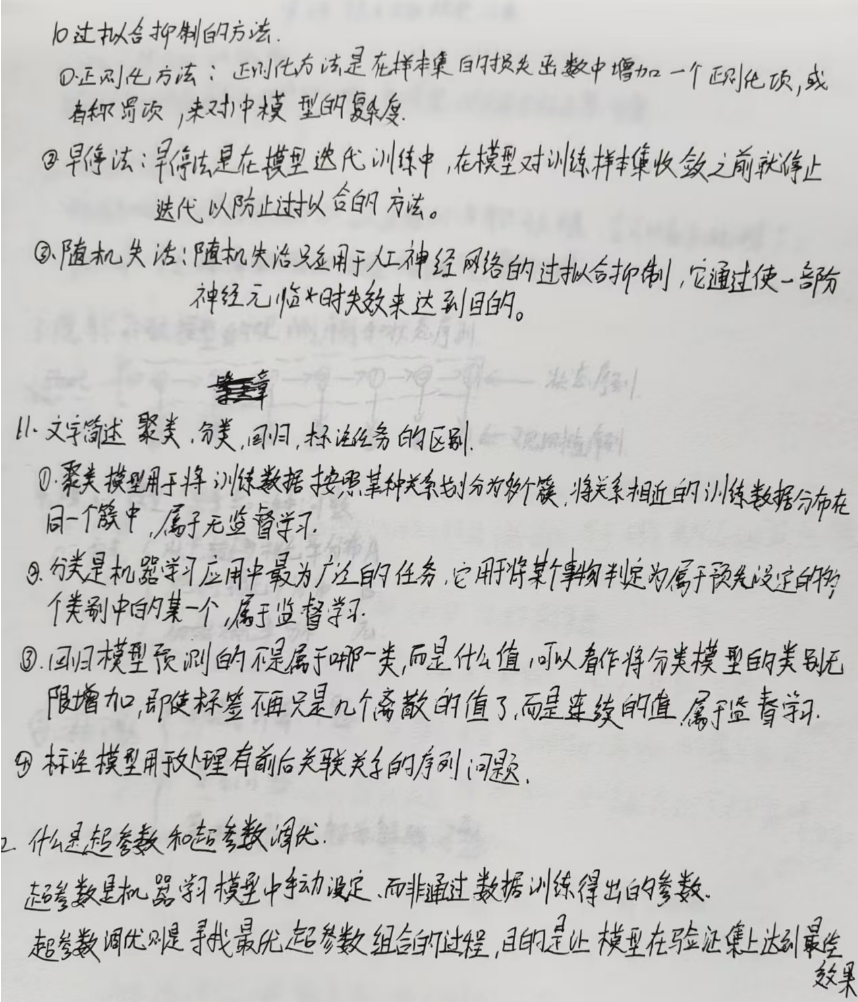 10 过拟合抑制的方法.
①.正则化方法：正则化方法是在样本集的损失函数中增加一个正则化项,或
者称罚项,来对冲模型的复杂度.
②早停法：早停法是在模型迭代训练中,在模型对训练样本集收敛之前就停止
迭代以防止过拟合的方法。
③.随机失活：随机失活只应用于人工神经网络的过拟合抑制,它通过使一部分
神经元临时失效来达到目的。
11.文字简述聚类,分类,回归,标注任务的区别.
①.聚类模型用于将训练数据按照某种关系划分为多个簇,将关系相近的训练数据分布在
同一个簇中,属于无监督学习.
②.分类是机器学习应用中最为广泛的任务,它用于将某个事物判定为属于预先设定的多
个类别中的某一个,属于监督学习.
③.回归模型预测的不是属于哪一类,而是什么值,可以看作将分类模型的类别无
限增加,即使标签不再只是几个离散的值了,而是连续的值,属于监督学习.
④标注模型用于处理有前后关联关系的序列问题.
2 什么是超参数和超参数调优.
超参数是机器学习模型中手动设定、而非通过数据训练得出的参数.
超参数调优则是寻找最优超参数组合的过程,目的是让模型在验证集上达到最佳
效果